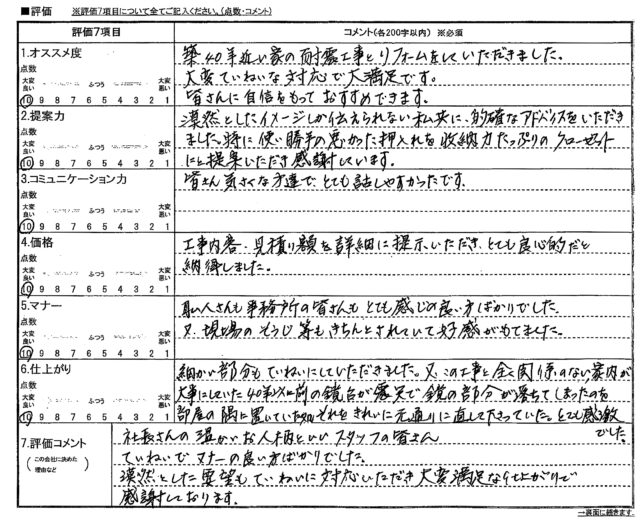 ■評価 ※評価7項目について全てご記入ください。(点数・コメント)
評価7項目 コメント(各200字以内) ※必須
1.オススメ度
点数
大変良い ふつう 大変悪い
10 9 8 7 6 5 4 3 2 1
築40年近い家の耐震工事とリフォームをしていただきました。
大変ていねいな対応で大満足です。
皆さんに自信をもっておすすめできます。
2.提案力
点数
大変良い ふつう 大変悪い
10 9 8 7 6 5 4 3 2 1
漠然としたイメージしか伝えられない私共に、的確なアドバイスをいただき
ました。特に使い勝手の悪かった押入れを収納力たっぷりのクローゼット
にと提案いただき感謝しています。
3.コミュニケーション力
点数
大変良い ふつう 大変悪い
10 9 8 7 6 5 4 3 2 1
皆さん気さくな方達で、とても話しやすかったです。
4.価格
点数
大変良い ふつう 大変悪い
10 9 8 7 6 5 4 3 2 1
工事内容・見積り額を詳細に提示いただき、とても良心的だと
納得しました。
5.マナー
点数
大変良い ふつう 大変悪い
10 9 8 7 6 5 4 3 2 1
職人さんも事務所の皆さんもとても感じの良い方ばかりでした。
又、現場のそうじ等もきちんとされていて好感がもてました。
6.仕上がり
点数
大変良い ふつう 大変悪い
10 9 8 7 6 5 4 3 2 1
細かい部分もていねいにしていただきました。又、この工事と全く関係のない、家内が
大事にしていた40年以前の鏡台が震災で鏡の部分が落ちてしまったのを
部屋の隅に置いていた それをきれいに元通りに直して下さっていた。とても感激
でした。
7.評価コメント
(この会社に決めた理由など)
社長さんの温かいお人柄といいスタッフの皆さん
ていねいでマナーの良い方ばかりでした。
漠然とした要望もていねいに対応いただき大変満足な仕上がりで
感謝しております。
→裏面に続きます。